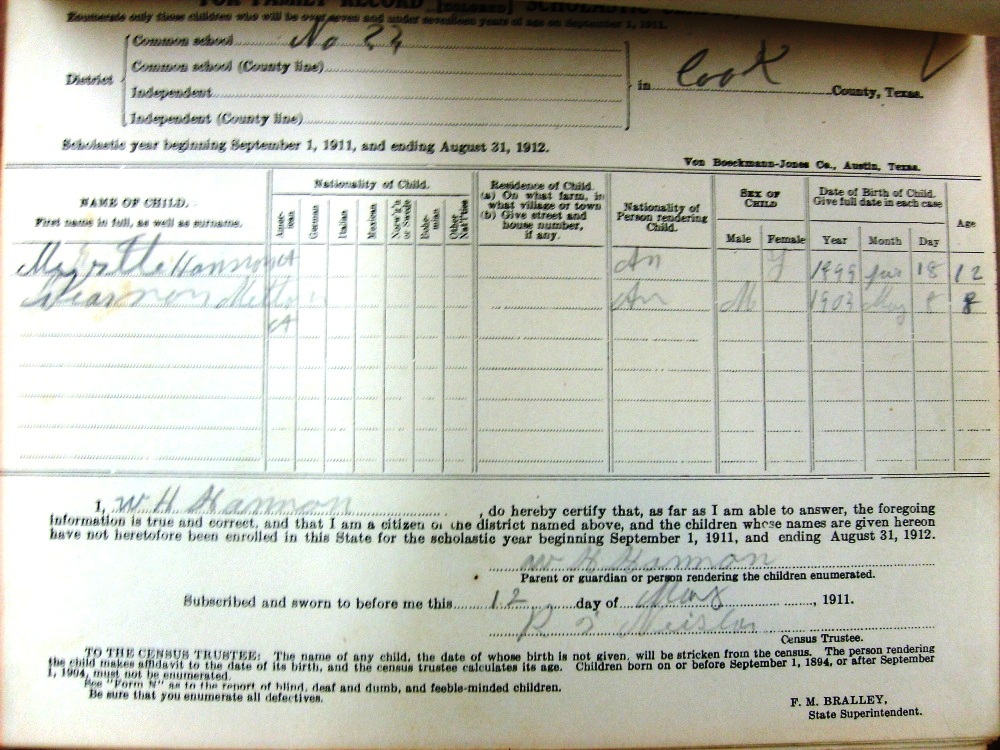 FOR FAMILY RECORD [COLORED] SCHOLASTIC
Enumerate only those children who will be over seven and under seventeen years of age on September 1, 1911.
District
Common school No 23
Common school (County line)
Independent
Independent (County line)
in Cook County, Texas.
Scholastic year beginning September 1, 1911, and ending August 31, 1912.
Von Boeckmann-Jones Co., Austin, Texas.
NAME OF CHILD.
First name in full, as well as surname.
Nationality of Child.
Amer-ican
German
Italian
Mexican
Norw'g'n or Swede
Bohe-mian
Other Nat'l'ties
Residence of Child.
(a) On what farm, in what village or town
(b) Give street and house number, if any.
Nationality of Person rendering Child.
SEX OF CHILD
Male Female
Date of Birth of Child.
Give full date in each case
Year Month Day
Age
Myrtle Hannon A An F 1899 18 12
Hannon An M 1903 May 8 8
A
I, W H Hannon, do hereby certify that, as far as I am able to answer, the foregoing
information is true and correct, and that I am a citizen of the district named above, and the children whose names are given hereon
have not heretofore been enrolled in this State for the scholastic year beginning September 1, 1911, and ending August 31, 1912.
W H Hannon
Parent or guardian or person rendering the children enumerated.
Subscribed and sworn to before me this 12 day of May, 1911.
Census Trustee.
TO THE CENSUS TRUSTEE: The name of any child, the date of whose birth is not given, will be stricken from the census. The person rendering
the child makes affidavit to the date of its birth, and the census trustee calculates its age. Children born on or before September 1, 1894, or after September
1, 1904, must not be enumerated.
See "Form N" as to the report of blind, deaf and dumb, and feeble-minded children.
Be sure that you enumerate all defectives.
F. M. BRALLEY,
State Superintendent.